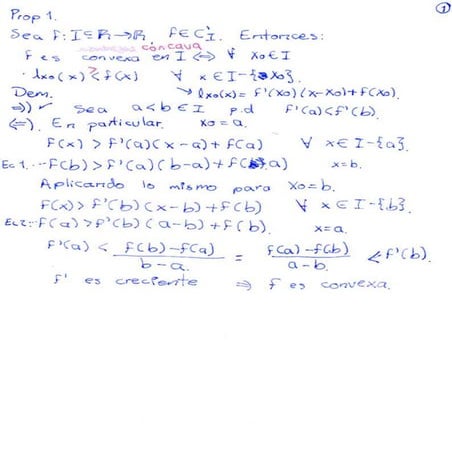 ①
Prop 1.
Sea f: I ⊆ ℝ → ℝ, f ∈ C¹. Entonces:
cóncava
f es convexa en I ⟺ ∀ x₀ ∈ I
· lx₀(x) < f(x) ∀ x ∈ I - {x₀}.
Dem. → lx₀(x) = f'(x₀)(x-x₀)+f(x₀).
⇒) ✓ Sea a<b ∈ I p.d f'(a)<f'(b).
⇐). En particular. x₀ = a.
f(x) > f'(a)(x-a)+f(a) ∀ x ∈ I-{a}.
Ec 1. ∴ f(b) > f'(a)(b-a)+f(a) x=b.
Aplicando lo mismo para x₀=b.
f(x) > f'(b)(x-b)+f(b) ∀ x ∈ I-{b}.
Ec 2: ∴ f(a) > f'(b)(a-b)+f(b). x=a.
f'(a) < f(b)-f(a) / b-a = f(a)-f(b) / a-b < f'(b).
f' es creciente ⇒ f es convexa.